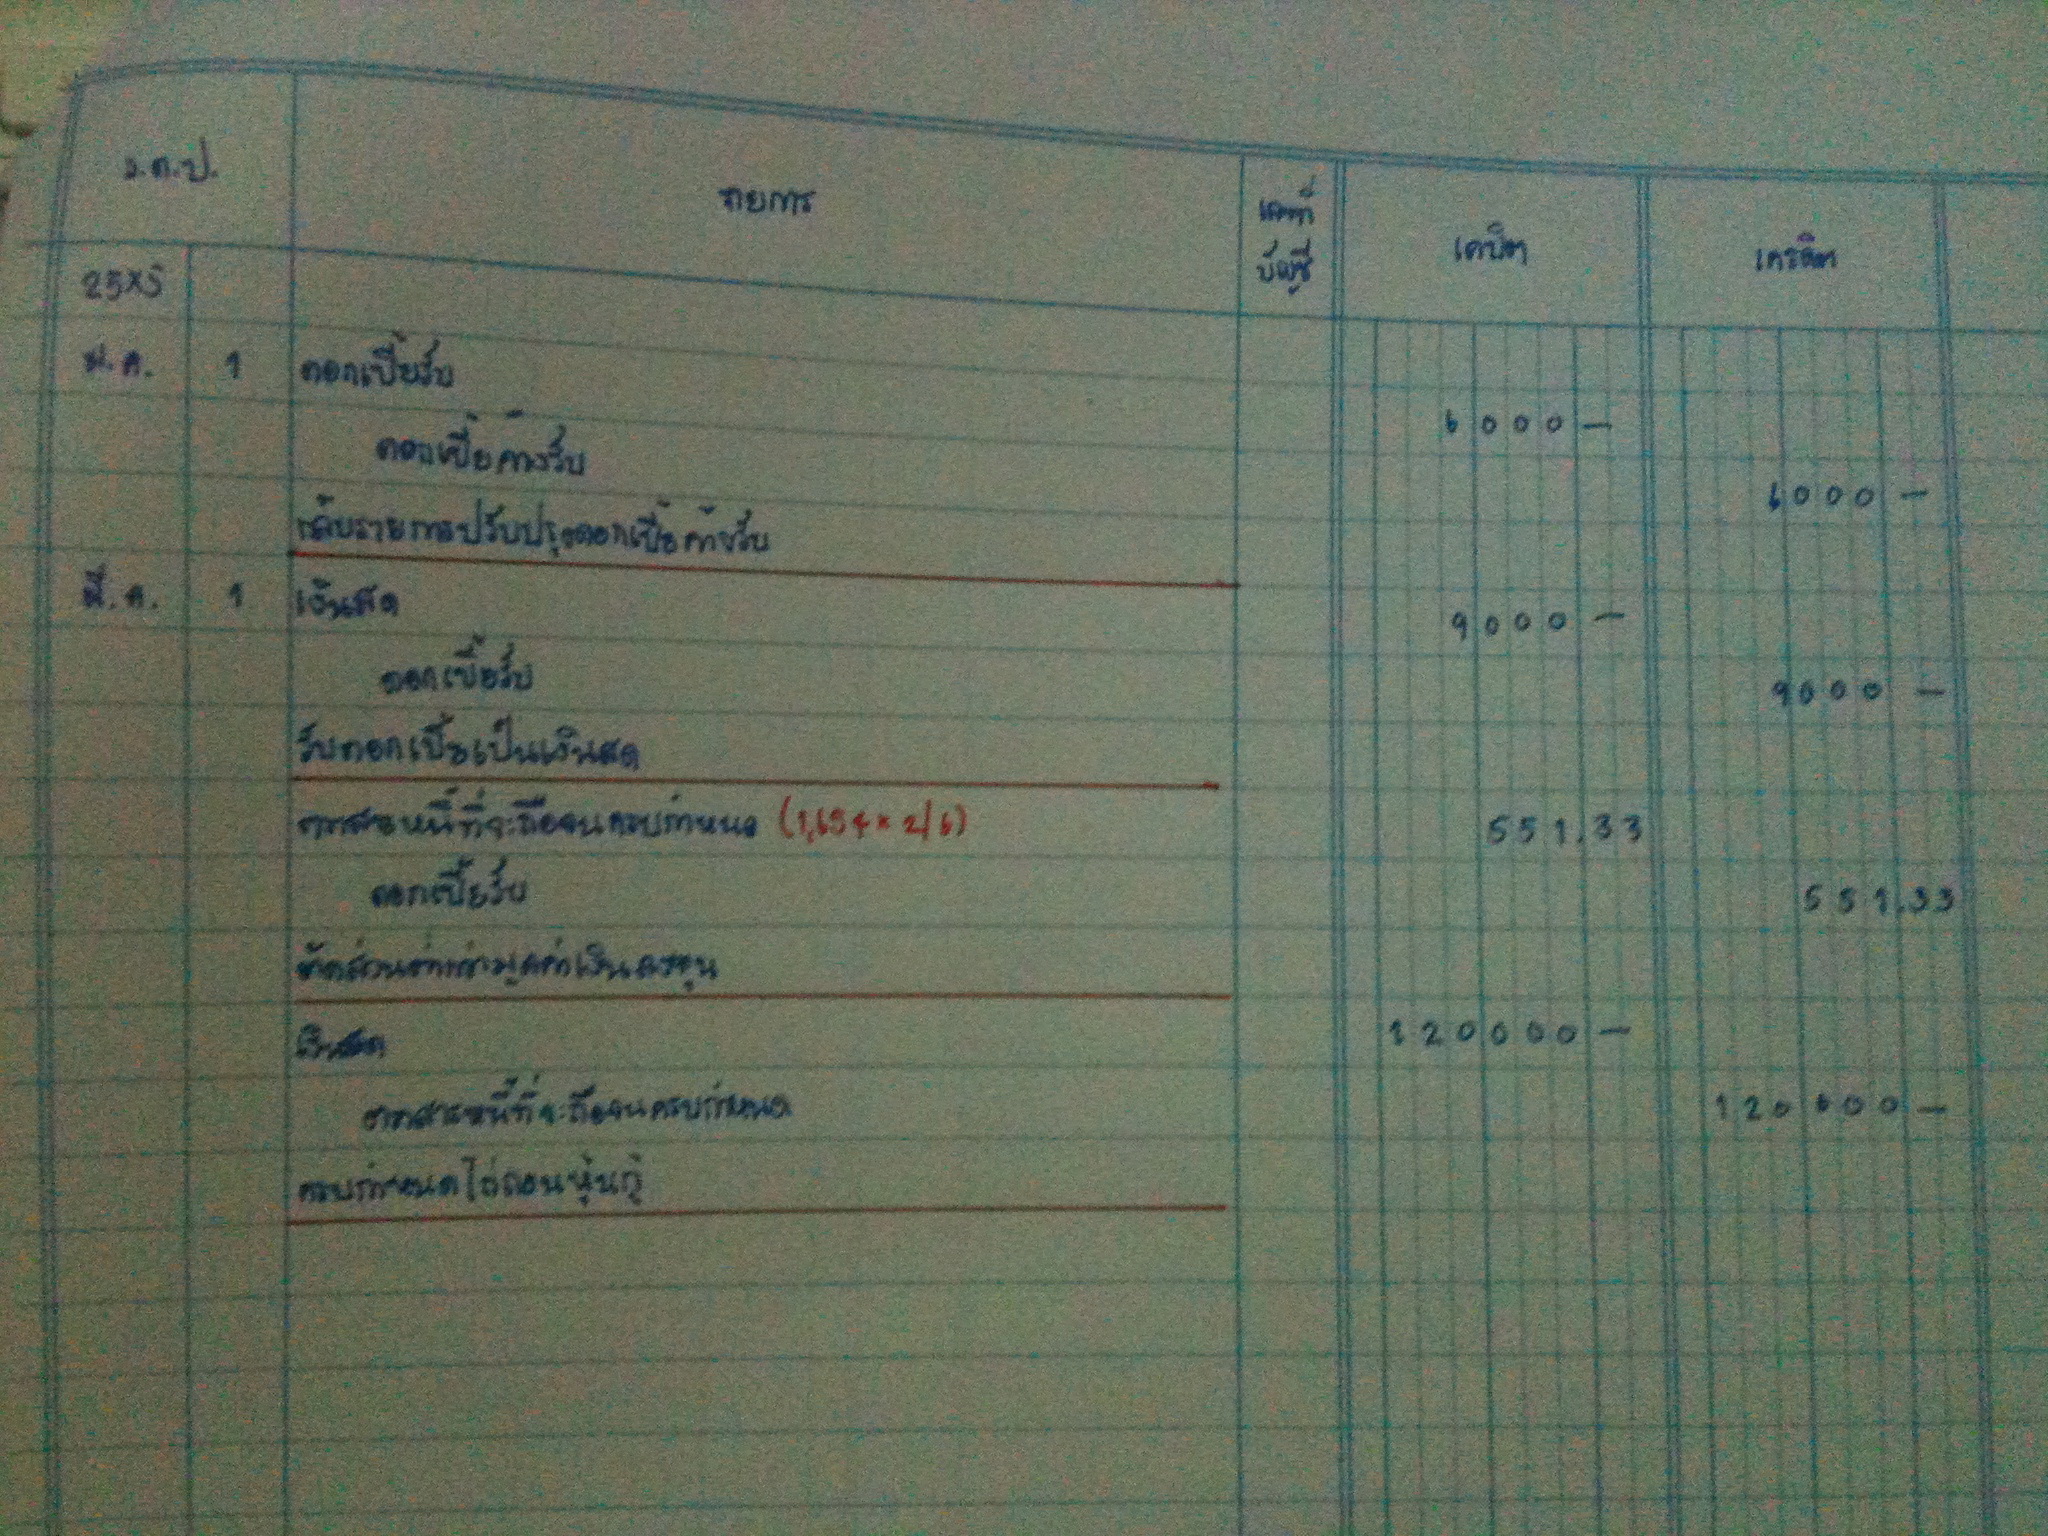 ว.ด.ป. รายการ เลขที่บัญชี เดบิต เครดิต
25X5
ม.ค. 1 ดอกเบี้ยรับ 6000 —
ดอกเบี้ยค้างรับ 6000 —
กลับรายการปรับปรุงดอกเบี้ยค้างรับ
มี.ค. 1 เงินสด 9000 —
ดอกเบี้ยรับ 9000 —
รับดอกเบี้ยเป็นเงินสด
ตราสารหนี้ที่จะถือจนครบกำหนด (1,654 × 2/6) 551.33
ดอกเบี้ยรับ 551.33
ตัดส่วนต่ำกว่ามูลค่าเงินลงทุน
เงินสด 120000 —
ตราสารหนี้ที่จะถือจนครบกำหนด 120000 —
ครบกำหนดไถ่ถอนหุ้นกู้